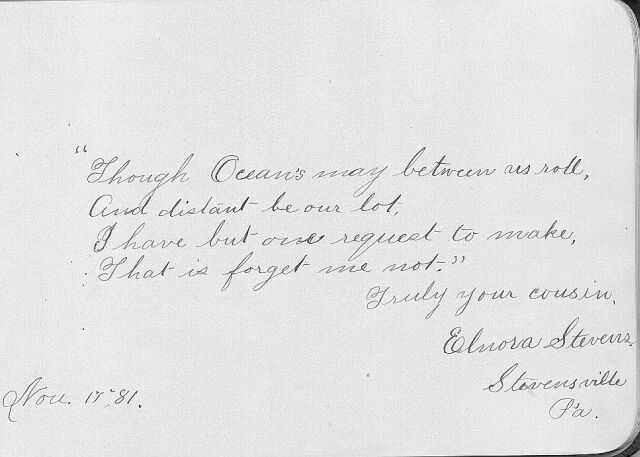 "Though Ocean's may between us roll,
And distant be our lot,
I have but one request to make,
That is forget me not."
Truly your cousin,
Elnora Stevens,
Stevensville
Pa.
Nov. 17, 81.